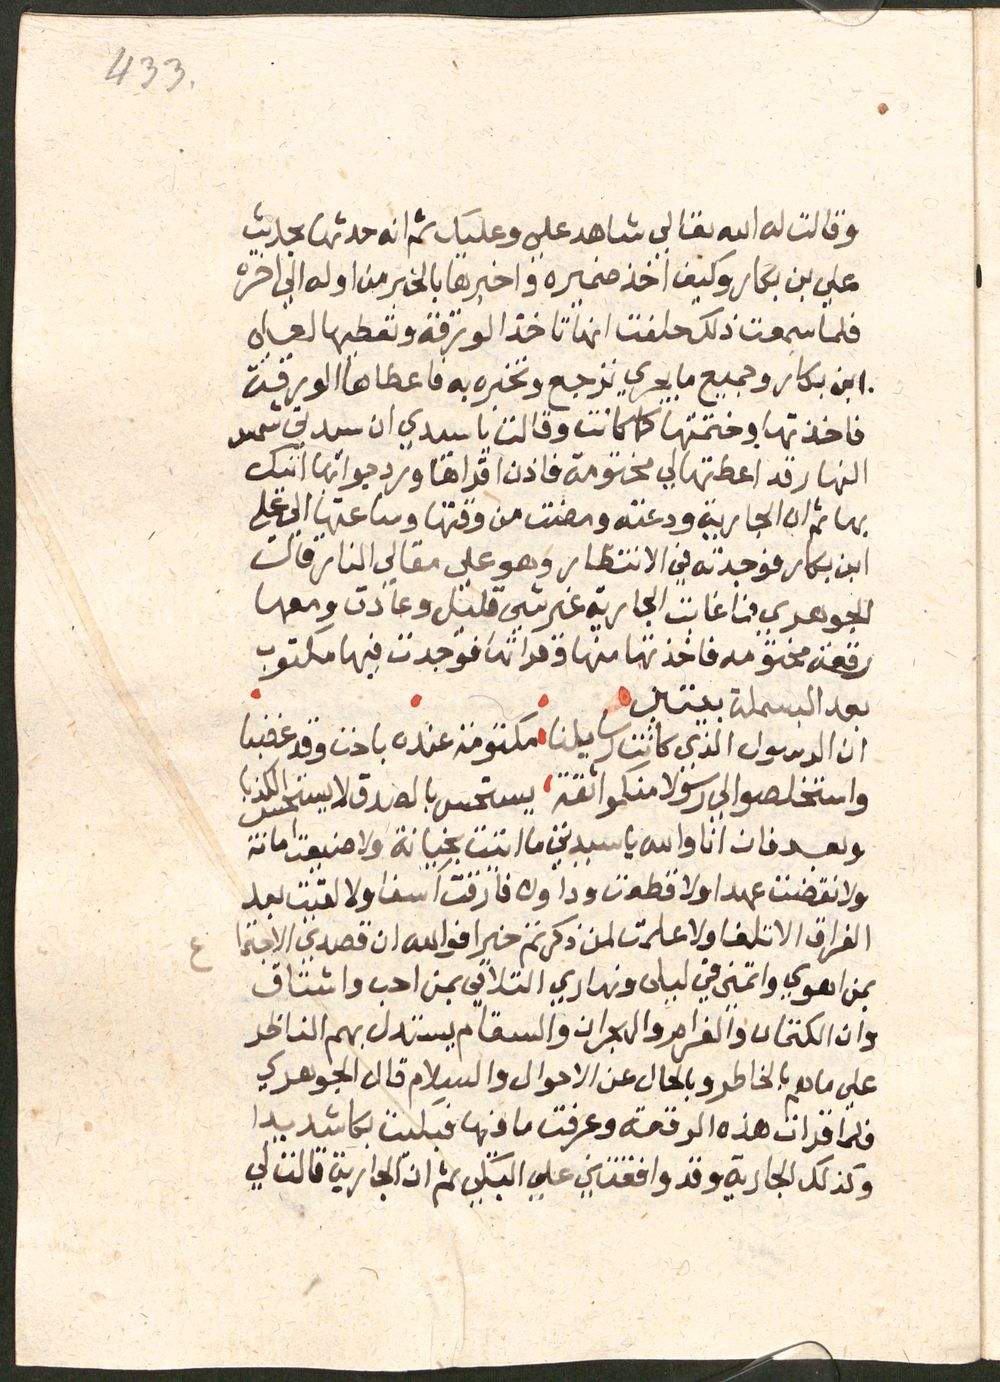 433.
وقالت له الله تعالي شاهد علي وعليك ثم انه حدثها بحديث
علي بن بكار وكيف اخذ ضميره واخبرها بالخبر من اوله الي اخره
فلما سمعت ذلك حلفت انها تاخذ الورقة وتعطيها لعلي
ابن بكار وجميع ما يجري ترجع وتخبره به فاعطاها الورقة
فاخذتها وختمتها كما كانت وقالت يا سيدي ان سيدتي شمس
النهار قد اعطتهالي مختومة فاذن اقراها ورد جوابها اتيتك
بها ثم ان الجارية ودعته ومضت من وقتها وساعتها الي علي
ابن بكار فوجدته في الانتظار وهو علي مقالي النار قالت
الجوهري فما غابت الجارية غير شي قليل وعادت ومعها
رقعة مختومه فاخذتها منها وقراتها فوجدت فيها مكتوب
بعد البسملة بيتين
ان الرسول الذي كانت رسايلنا مكتومة عنده باحت وقد غضبا
واستخلصوا لي رسولا منكموا ثقة يستحسن بالصدق لا يستحسن الكذبا
وبعد فان انا والله يا سيدتي ما اتيت بخيانة ولا ضيعت امانة
ولا نقضت عهدا ولا قطعت ودا ولا فارقت اسفا ولا لقيت بعد
الفراق الا تلفا ولا علمت لمن ذكرتم خبرا فوالله ان قصدي الاجتماع
بمن اهوي واتمني في ليلي ونهاري التلاقي بمن احب واشتاق
وان الكتمان والغرام والهجران والسقام يستدل بهم الناظر
علي ما هم بالخاطر وبالحال عن الاحوال والسلام قال الجوهري
فلما قرات هذه الرقعة وعرفت ما فيها فبكيت بكا شديدا
وكذلك الجارية وقد وافقتني علي البكي ثم ان الجارية قالت لي